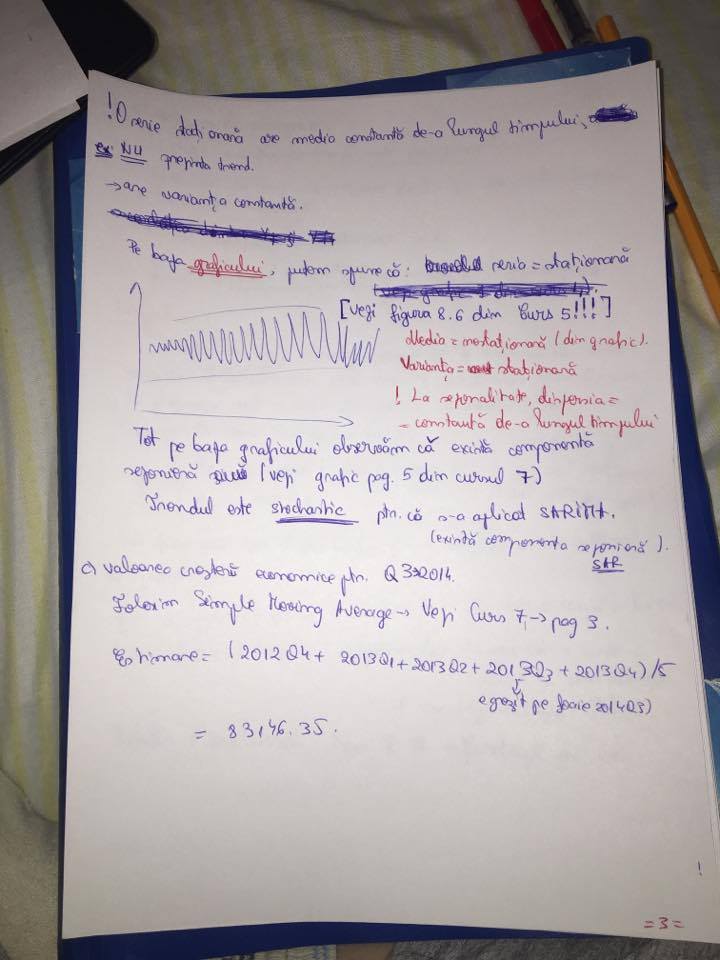 ! O serie staționară are media constantă de-a lungul timpului,
NU prezintă trend.
→ are varianța constantă.
Pe baza graficului, putem spune că: seria = staționară
[Vezi figura 8.6 din Curs 5!!!]
Media = nestaționară (din grafic).
Varianța = staționară
! La sezonalitate, dispersia =
= constantă de-a lungul timpului
Tot pe baza graficului observăm că există componentă
sezonieră (vezi grafic pag. 5 din cursul 7)
Trendul este stochastic ptr. că s-a aplicat SARIMA.
(există componenta sezonieră).
SAR
c) valoarea creșterii economice ptr. Q3 2014.
Folosim Simple Moving Average → Vezi Curs 7, → pag 3.
Estimare = (2012Q4 + 2013Q1 + 2013Q2 + 2013Q3 + 2013Q4)/5
e greșit pe foaie 2014Q3)
= 83146.35.
!
=3=